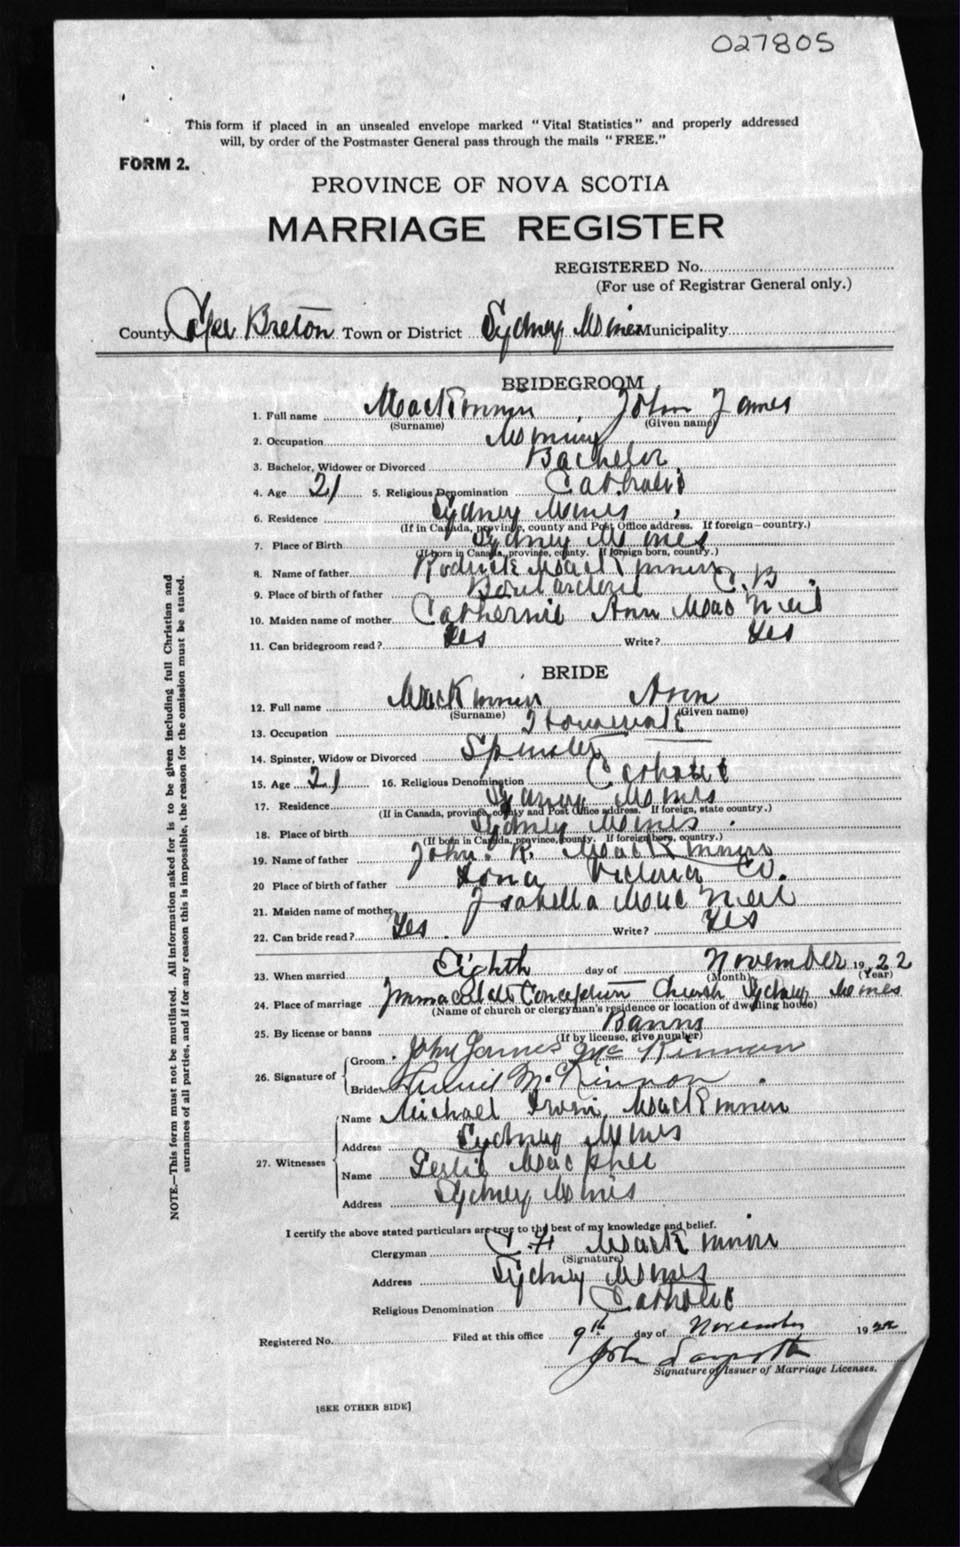 027805
This form if placed in an unsealed envelope marked "Vital Statistics" and properly addressed
will, by order of the Postmaster General pass through the mails "FREE."
FORM 2.
PROVINCE OF NOVA SCOTIA
MARRIAGE REGISTER
REGISTERED No.
(For use of Registrar General only.)
County Cape Breton Town or District Sydney Mines Municipality
BRIDEGROOM
1. Full name MacKinnon, John James
(Surname) (Given name)
2. Occupation Mining
3. Bachelor, Widower or Divorced Bachelor
4. Age 21 5. Religious Denomination Catholic
6. Residence Sydney Mines
(If in Canada, province, county and Post Office address. If foreign—country.)
7. Place of Birth Sydney Mines
(If born in Canada, province, county. If foreign born, country.)
8. Name of father Roderick MacKinnon
9. Place of birth of father C. B.
10. Maiden name of mother Catherine Ann MacNeil
11. Can bridegroom read? Yes Write? Yes
BRIDE
12. Full name MacKinnon Ann
(Surname) (Given name)
13. Occupation Housework
14. Spinster, Widow or Divorced Spinster
15. Age 21 16. Religious Denomination Catholic
17. Residence Sydney Mines
(If in Canada, province, county and Post Office address. If foreign, state country.)
18. Place of birth Sydney Mines.
(If born in Canada, province, county. If foreign born, country.)
19. Name of father John. R. MacKinnon
20 Place of birth of father Iona Victoria Co.
21. Maiden name of mother Isabella MacNeil
22. Can bride read? Yes. Write? Yes
23. When married Eighth day of November 1922
(Month) (Year)
24. Place of marriage Immaculate Conception Church Sydney Mines
(Name of church or clergyman's residence or location of dwelling house)
25. By license or banns Banns
(If by license, give number)
26. Signature of
Groom John James McKinnon
Bride McKinnon
27. Witnesses
Name Michael Irvin MacKinnon
Address Sydney Mines
Name Leslie MacPhee
Address Sydney Mines
I certify the above stated particulars are true to the best of my knowledge and belief.
Clergyman MacKinnon
(Signature)
Address Sydney Mines
Religious Denomination Catholic
Registered No. Filed at this office 9th day of November 1922
John
Signature of Issuer of Marriage Licenses.
[SEE OTHER SIDE]
NOTE.—This form must not be mutilated. All information asked for is to be given including full Christian and
surnames of all parties, and if for any reason this is impossible, the reason for the omission must be stated.